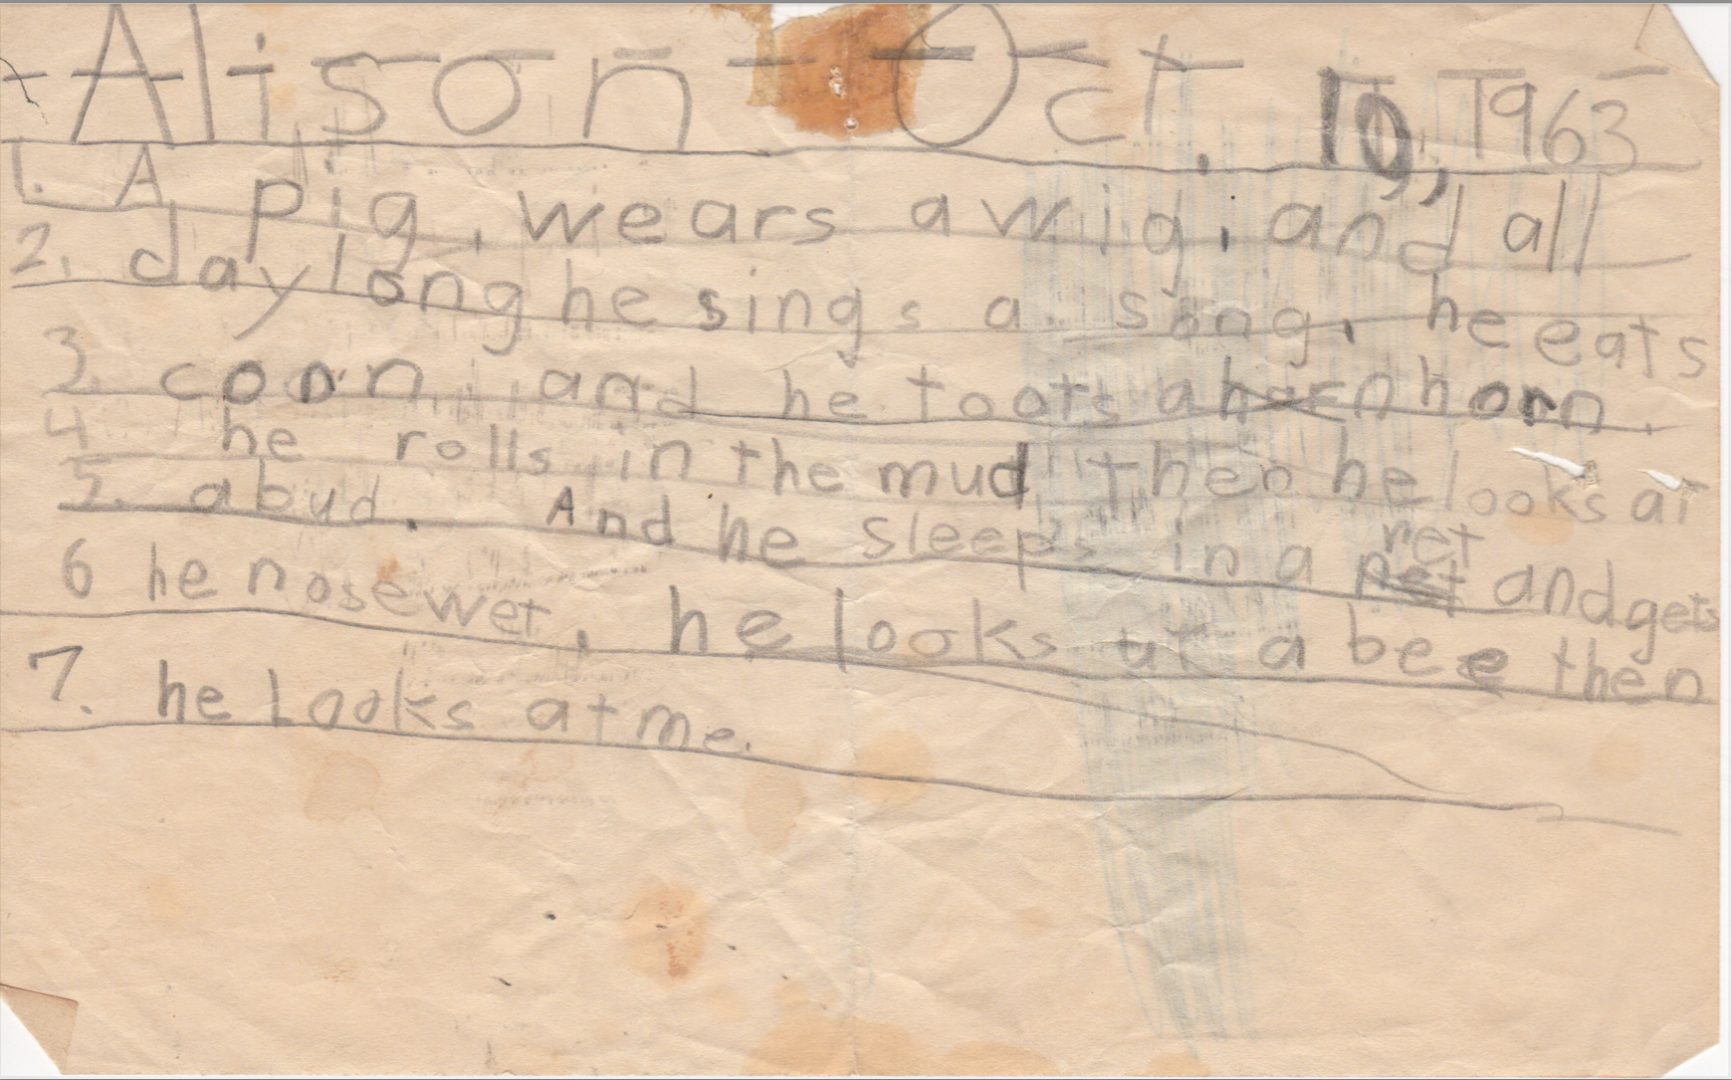 Alison Oct. 10, 1963
1. A pig, wears a wig, and all
2. day long he sings a song, he eats
3. coon, and he toots a horn.
4 he rolls in the mud then he looks at
5. a bud. And he sleeps in a net and gets
6 he nose wet, he looks at a bee then
7. he Looks at me.